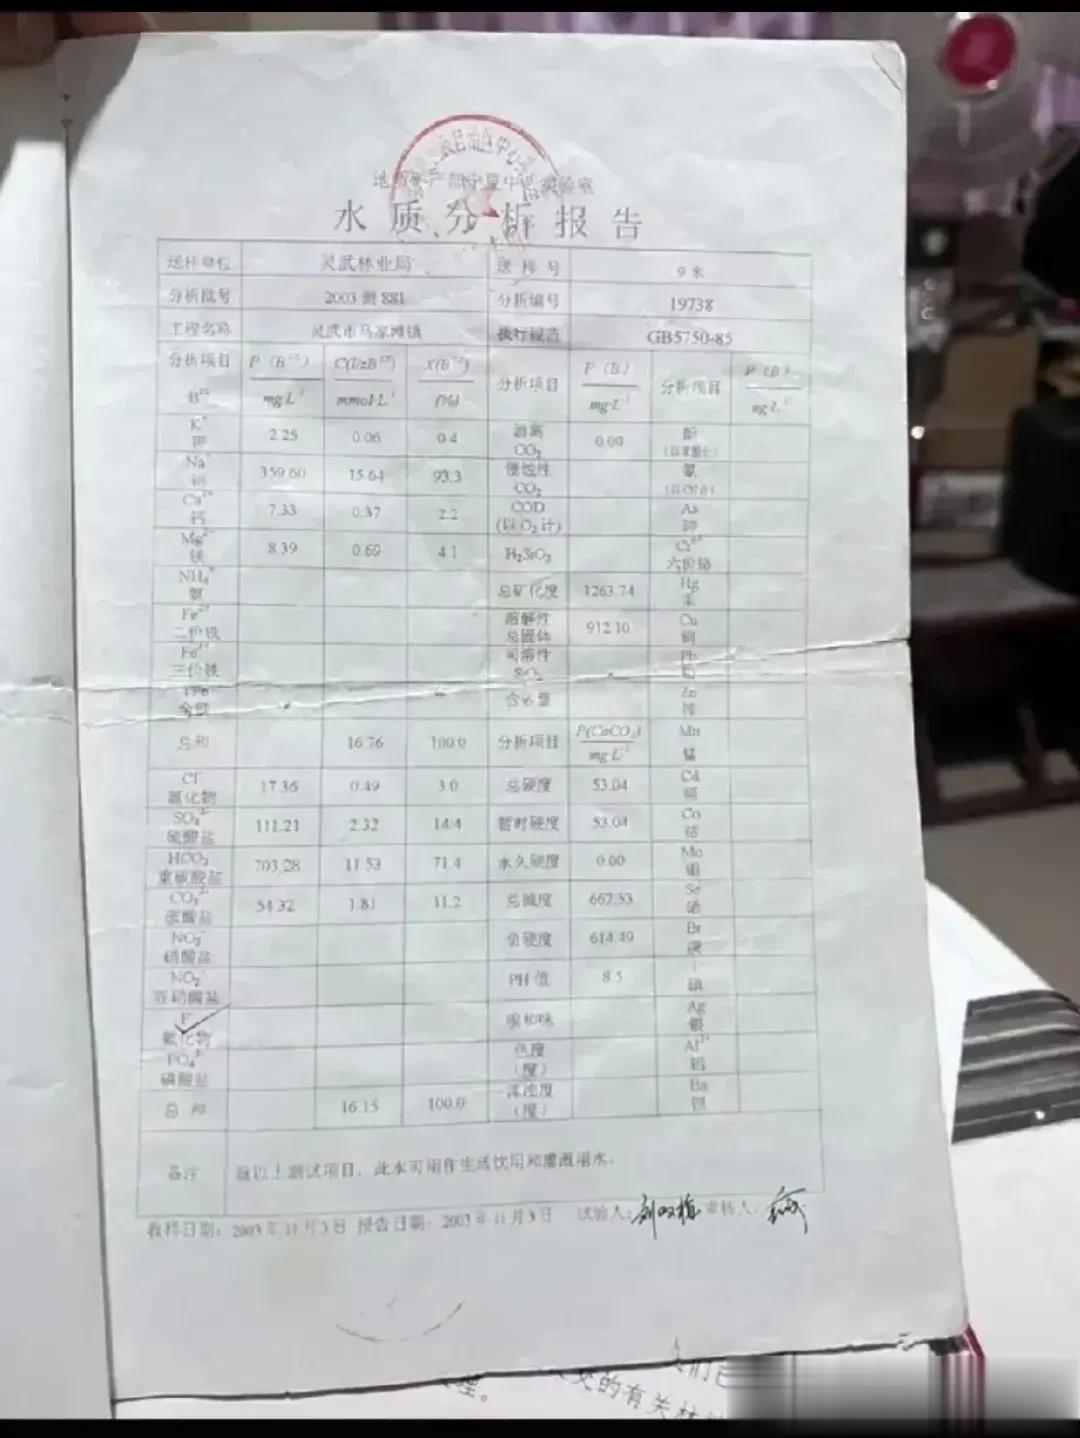 地质矿产部宁夏中心实验室
水质分析报告
送样单位 灵武林业局 送样号 9米
分析批号 2003测881 分析编号 19738
工程名称 灵武市马家滩镇 执行规范 GB5750-85
分析项目 P(B) C(1/zB) X(B) 分析项目 P(B) 分析项目 P(B)
mg·L⁻¹ mmol·L⁻¹ (%) mg·L⁻¹
K⁺ 钾 2.25 0.06 0.4 游离CO₂ 0.00 酚
Na⁺ 钠 359.60 15.64 93.3 侵蚀性CO₂ 氰
Ca²⁺ 钙 7.33 0.37 2.2 COD (以O₂计) As 砷
Mg²⁺ 镁 8.39 0.69 4.1 H₂SiO₃ Cr⁶⁺ 六价铬
NH₄⁺ 氨 总矿化度 1263.74 Hg 汞
Fe²⁺ 二价铁 溶解性总固体 912.10 Cu 铜
Fe³⁺ 三价铁 可溶性SiO₂ Pb 铅
TFe 全铁 Zn 锌
总和 16.76 100.0 分析项目 P(CaCO₃) mg·L⁻¹ Mn 锰
Cl⁻ 氯化物 17.36 0.49 3.0 总硬度 53.04 Cd 镉
SO₄²⁻ 硫酸盐 111.21 2.32 14.4 暂时硬度 53.04 Co 钴
HCO₃⁻ 重碳酸盐 703.28 11.53 71.4 永久硬度 0.00 Mo 钼
CO₃²⁻ 碳酸盐 54.32 1.81 11.2 总碱度 667.53 Se 硒
NO₃⁻ 硝酸盐 负硬度 614.49 Br 溴
NO₂⁻ 亚硝酸盐 PH值 8.5 I 碘
F⁻ 氟化物 嗅和味 Ag 银
PO₄³⁻ 磷酸盐 色度(度) Al³⁺ 铝
总和 16.15 100.0 浑浊度(度) Ba 钡
备注 据以上测试项目,此水可用作生活饮用和灌溉用水。
收样日期:2003年11月3日 报告日期:2003年11月3日 试验人: 审核人:
的有关林
理。